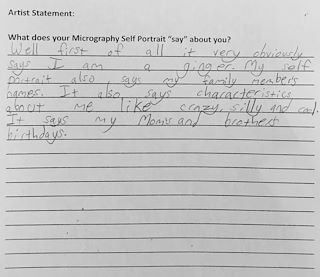 Artist Statement:
What does your Micrography Self Portrait "say" about you?
Well first of all it very obviously
says I am a ginger. My self
portrait also says my family members
names. It also says characteristics
about me like crazy, silly and cool.
It says my Moms and brothers
birthdays.